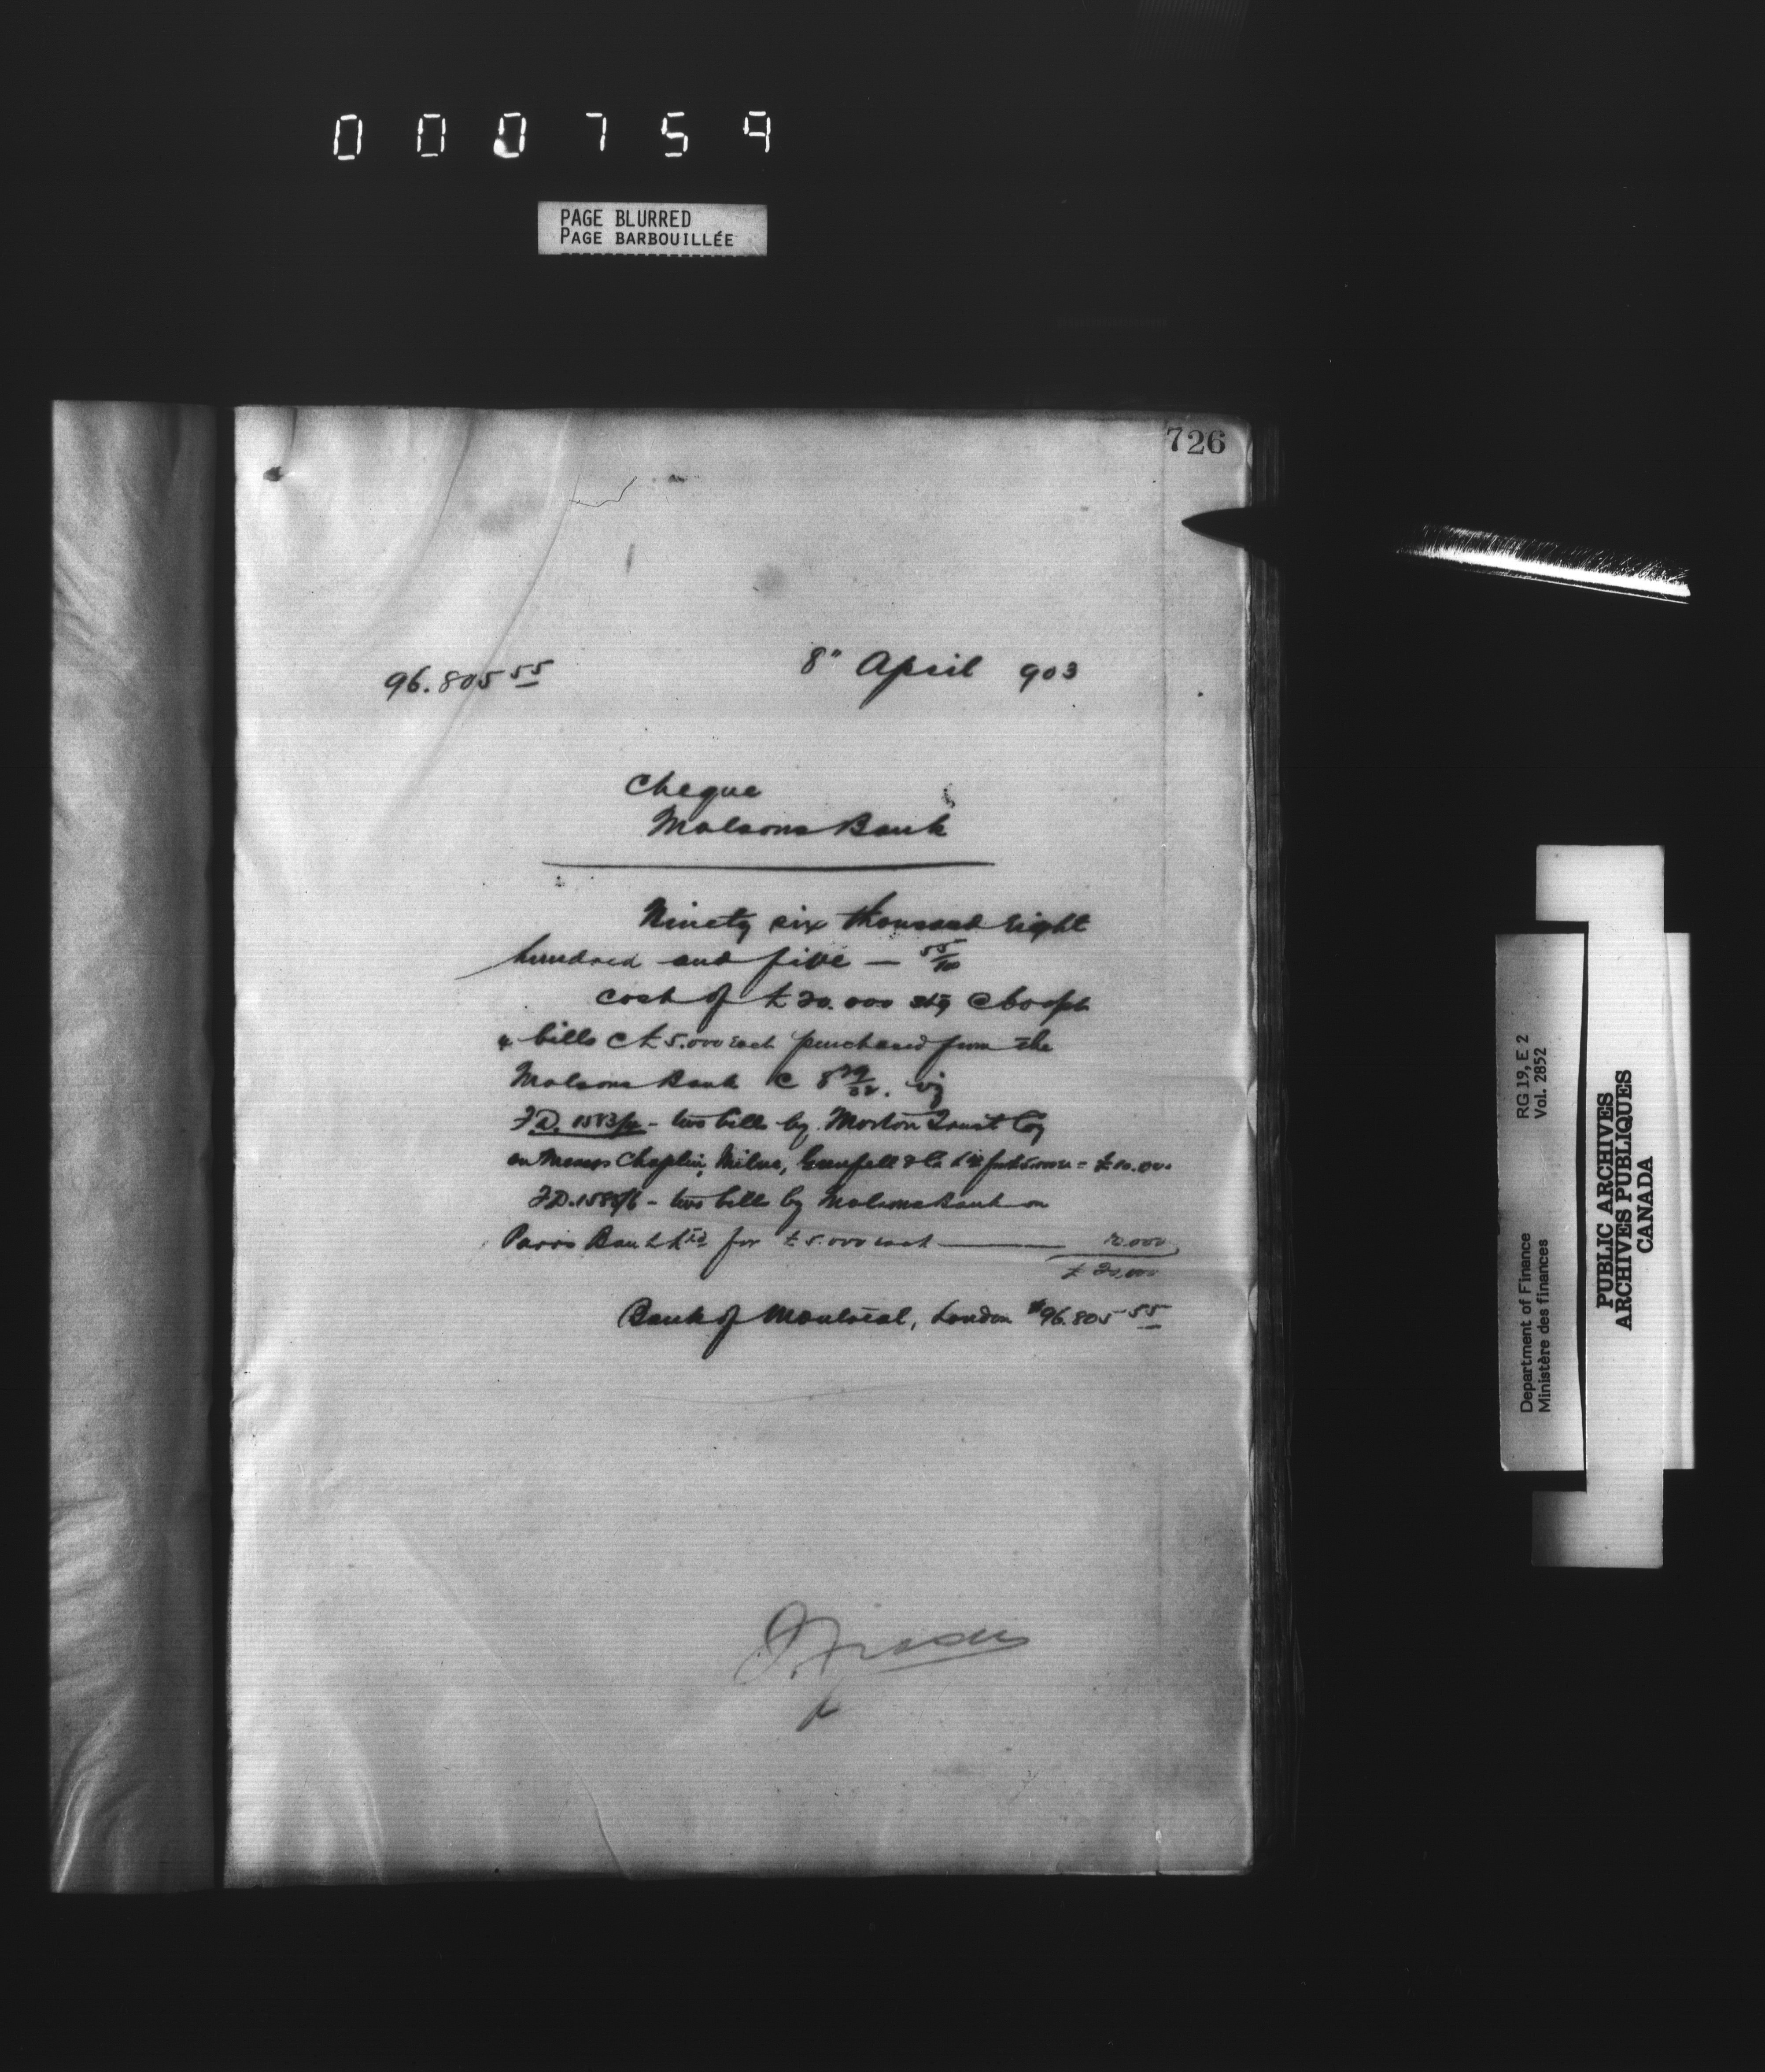 000759
PAGE BLURRED
PAGE BARBOUILLÉE
726
96.805 55
8" April 903
Cheque
Molsons Bank
Ninety six thousand Eight
hundred and five — 55/10
cost of £20.000 stg
4 bills @ £5.000 each purchased from the
Molsons Bank @ 8 29/32. viz
F.D. 1583/4 - two bills by Morton Trust Coy
on Messrs Chaplin, Milne, Grenfell & Co = £10.000
F.D. 1585/6 - two bills by Molsons Bank on
Parrs Bank Ltd for £5.000 each — 10.000
£20,000
Bank of Montreal, London $96.805 55
Department of Finance RG 19, E 2
Ministère des finances Vol. 2852
PUBLIC ARCHIVES
ARCHIVES PUBLIQUES
CANADA